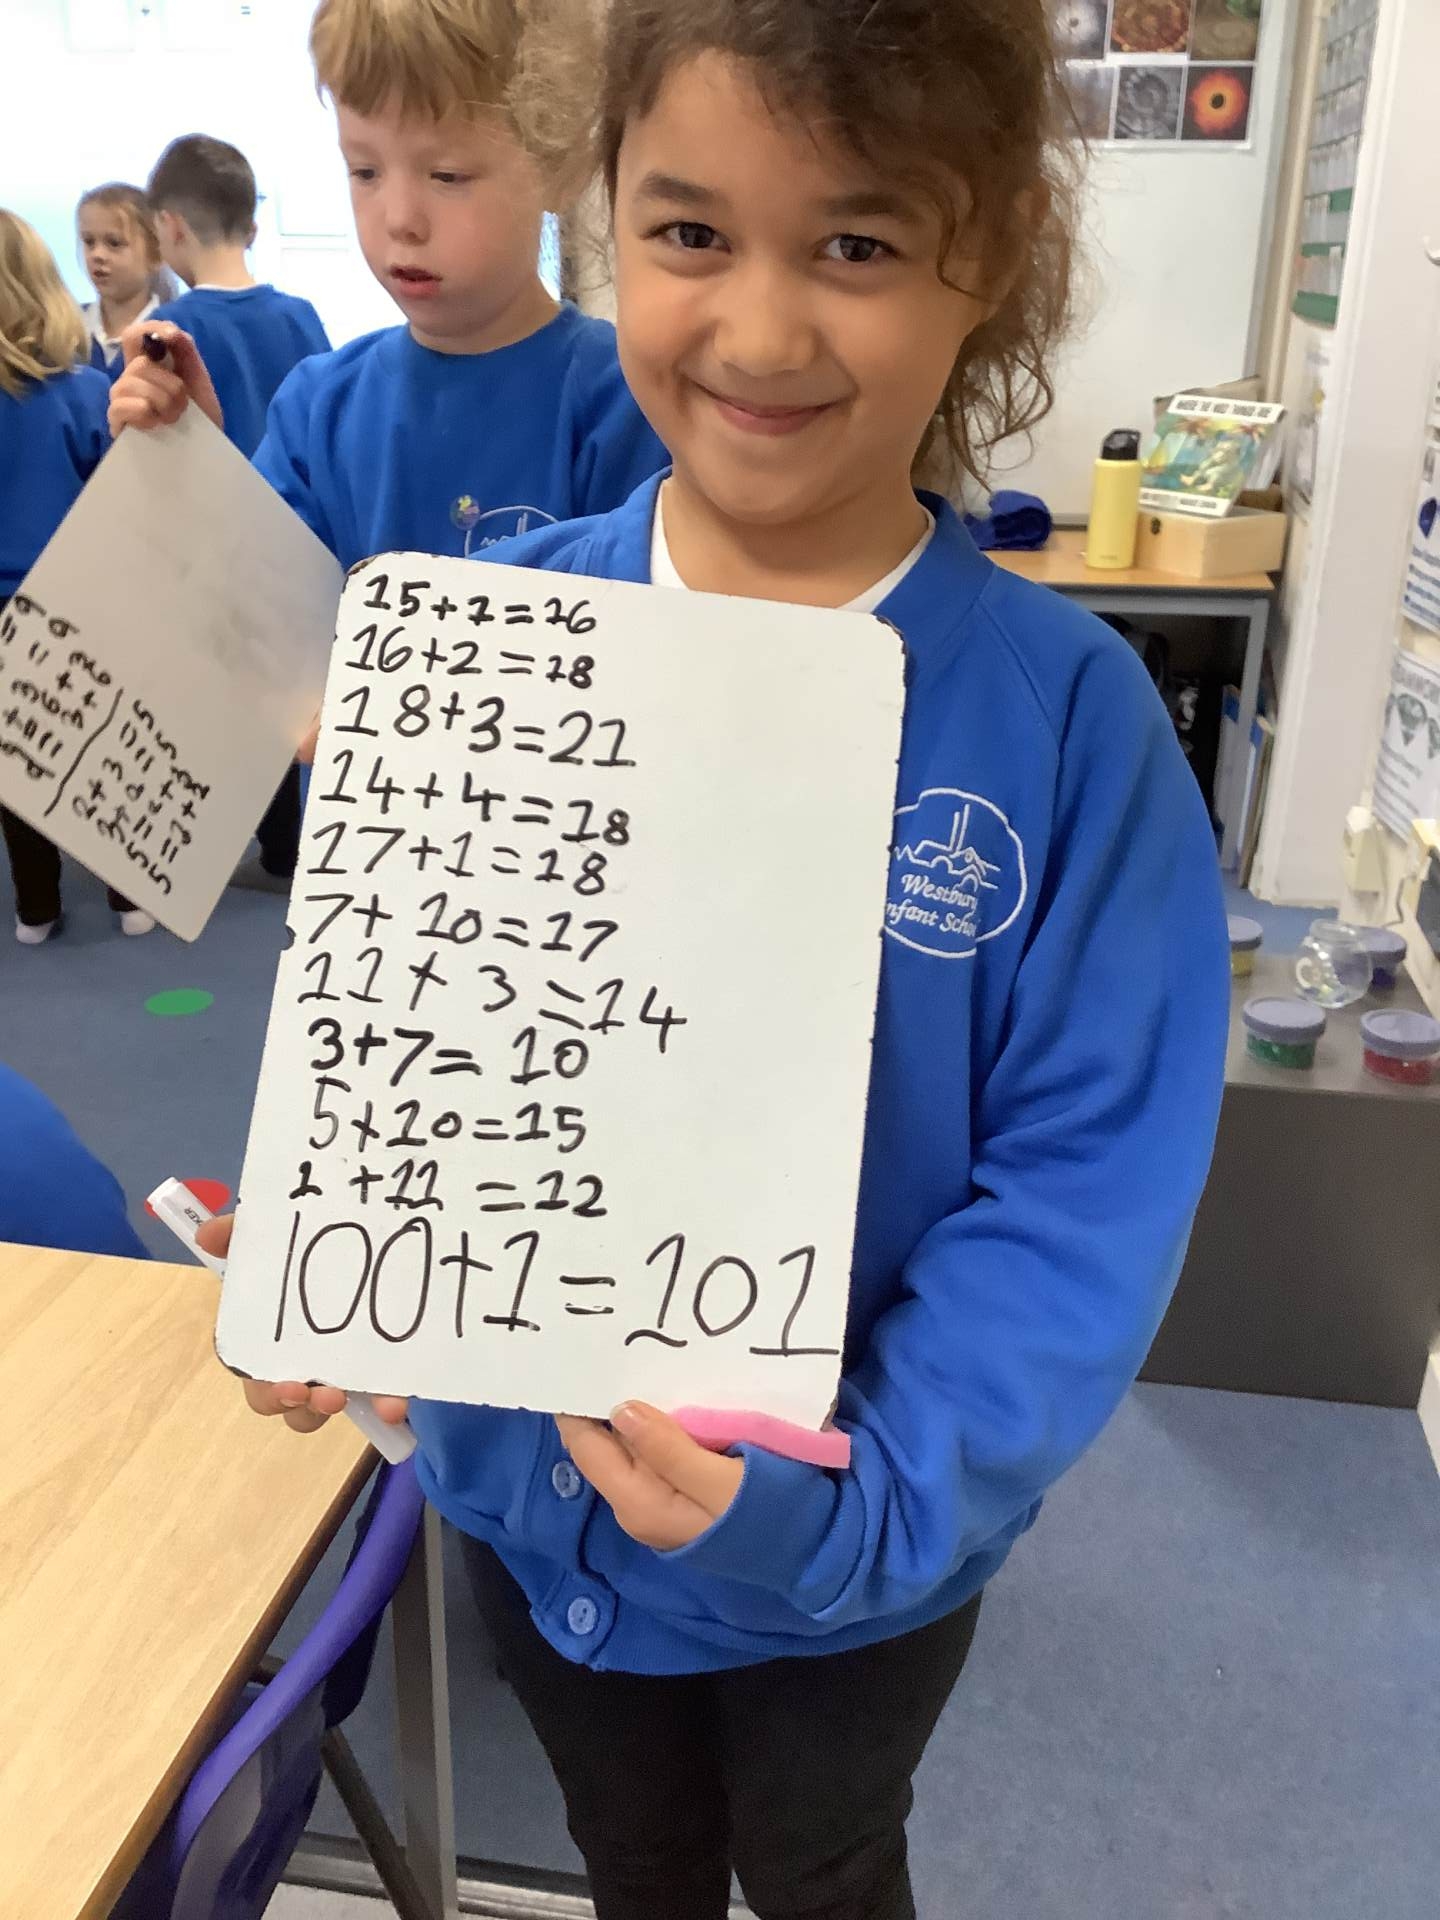 15+1=16
16+2=18
18+3=21
14+4=18
17+1=18
7+10=17
11+3=14
3+7=10
5+10=15
1+11=12
100+1=101
Westbury
Infant School
WHERE THE WILD THINGS ARE